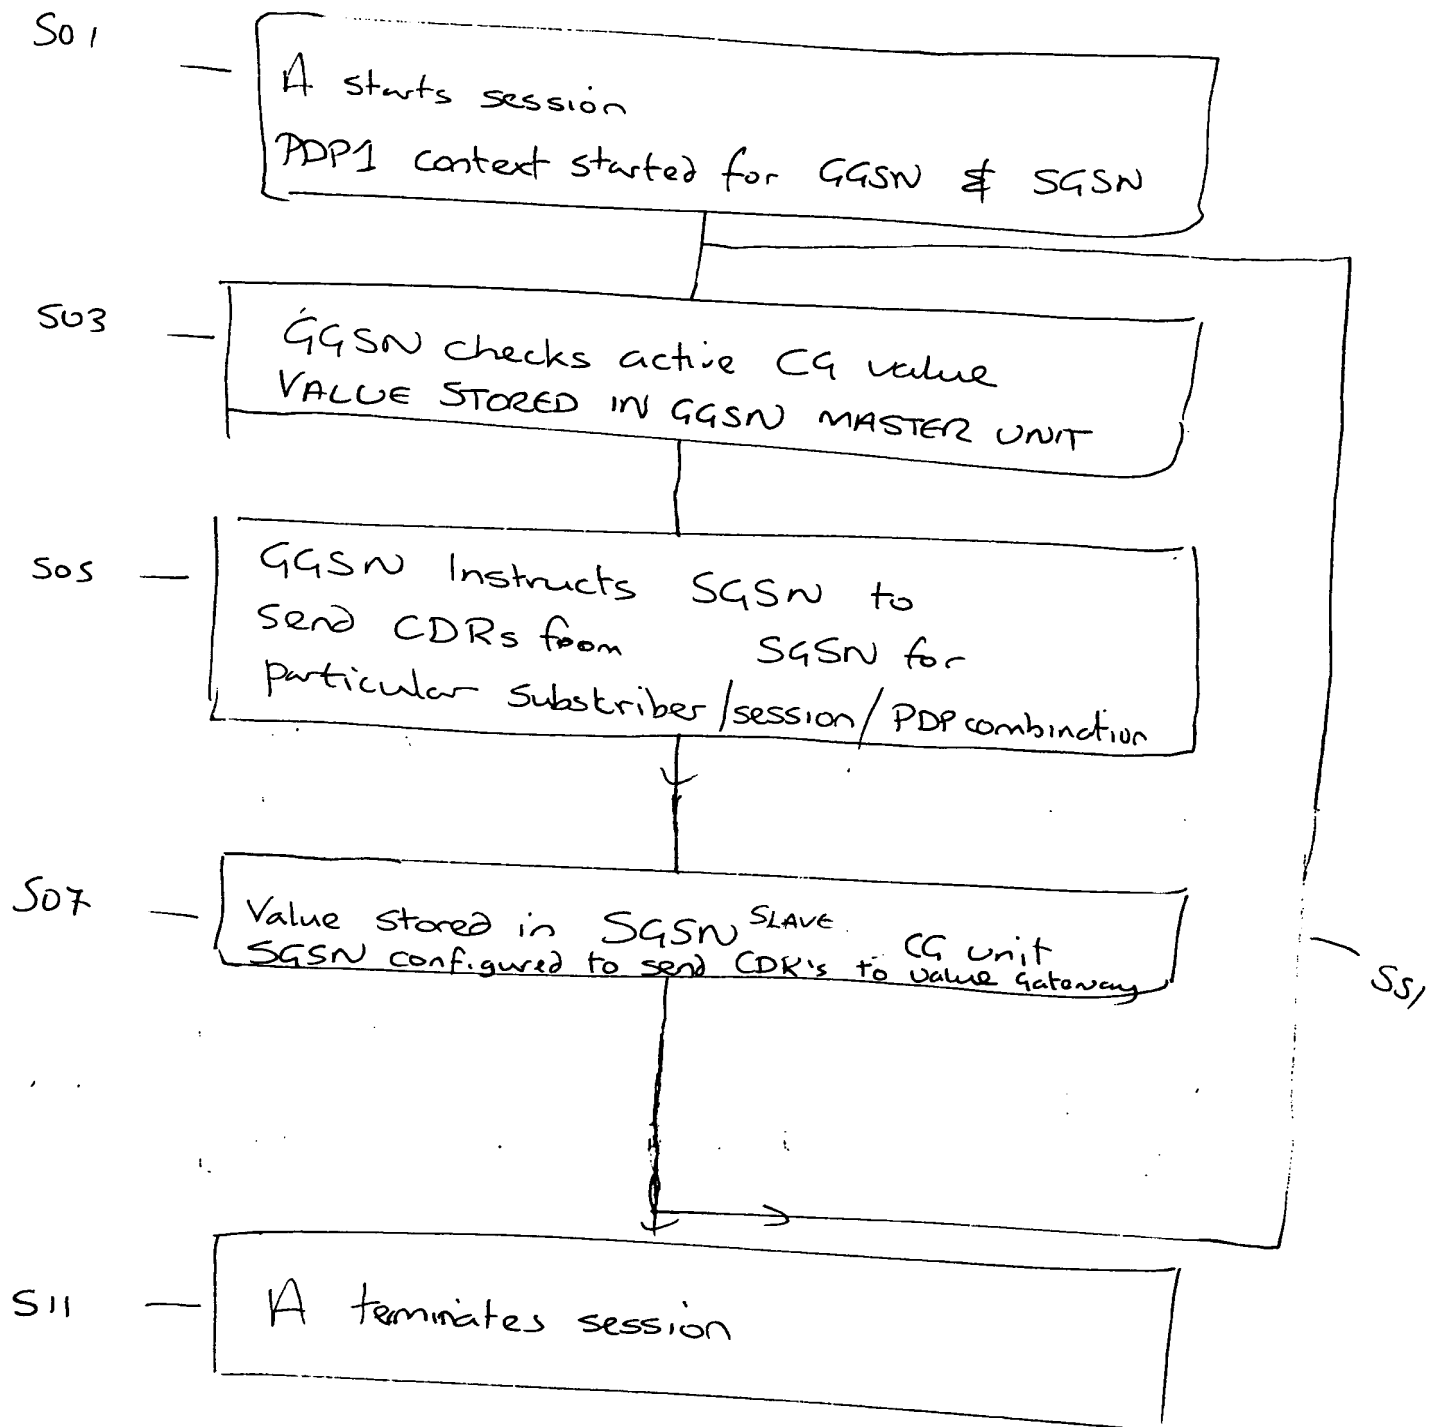 S01
A starts session
PDP1 context started for GGSN & SGSN
S03
GGSN checks active CG value
VALUE STORED IN GGSN MASTER UNIT
S05
GGSN Instructs SGSN to
send CDRs from SGSN for
particular Subskriber/session/PDP combination
S07
Value stored in SGSN SLAVE CG unit
SGSN configured to send CDR's to value Gateway
SS1
S11
A terminates session